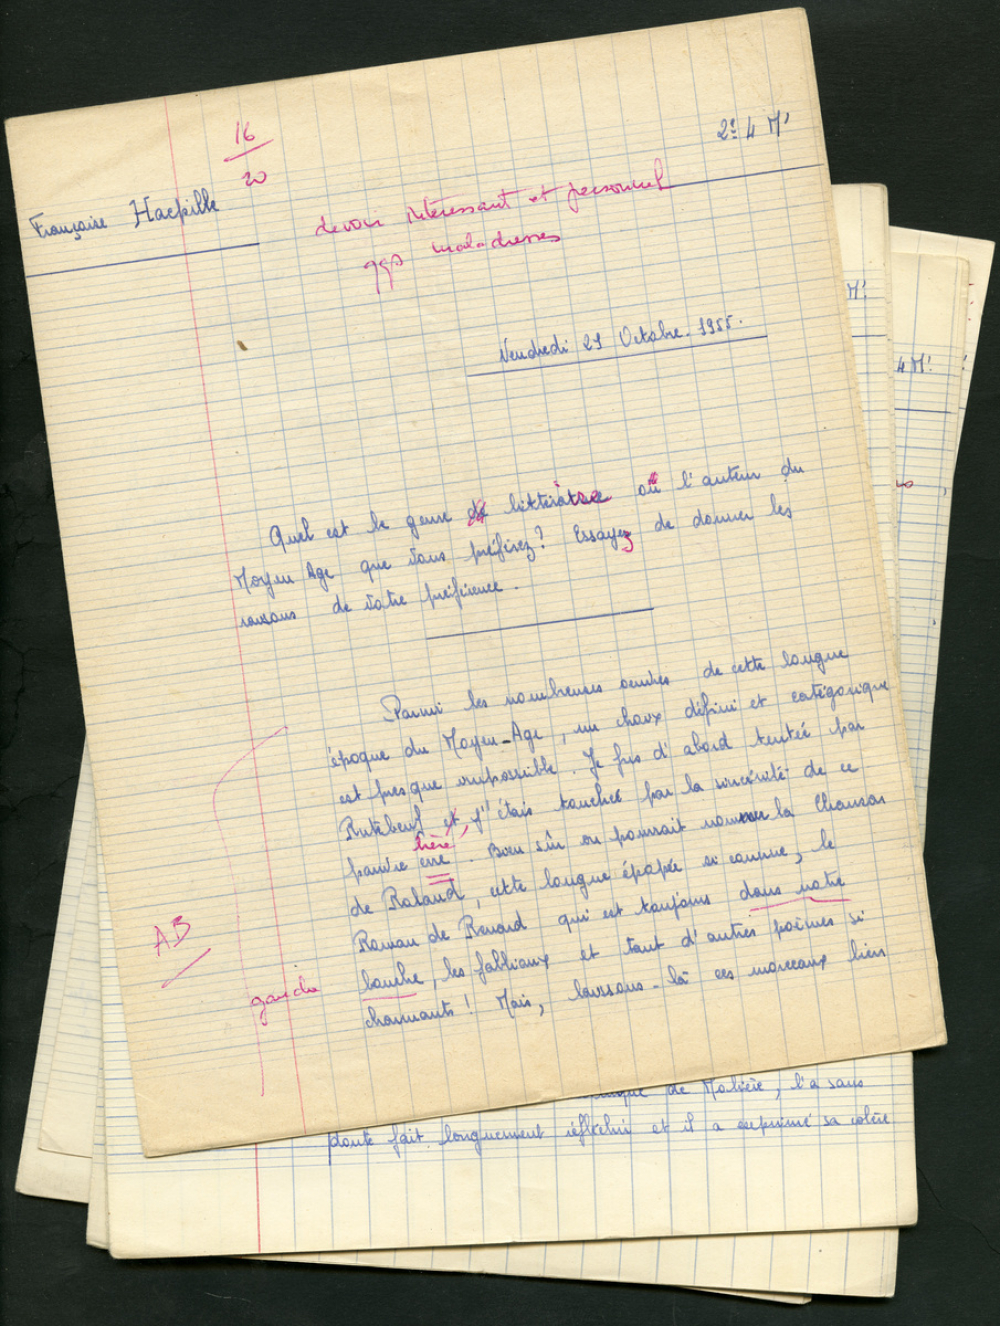 16
20
2e 4 M'
Françoise Haepille
devoir intéressant et personnel
qqs maladresses
Vendredi 21 Octobre. 1955.
Quel est le genre de littérature ou l'auteur du
Moyen Age que vous préférez? Essayez de donner les
raisons de votre préférence.
Parmi les nombreuses œuvres de cette longue
époque du Moyen-Age, un choix défini et catégorique
est presque impossible. Je fus d'abord tentée par
Rutebeuf et, j'étais touchée par la sincérité de ce
hère
pauvre erre. Bien sûr on pourrait nommer la Chanson
de Roland, cette longue épopée si connue, le
Roman de Renard qui est toujours dans notre
bouche, les fabliaux et tant d'autres poèmes si
charmants! Mais, laissons-là ces morceaux biens
AB
gauche
M'
4 M'
de Molière, l'a sans
doute fait longuement réfléchir et il a exprimé sa colère